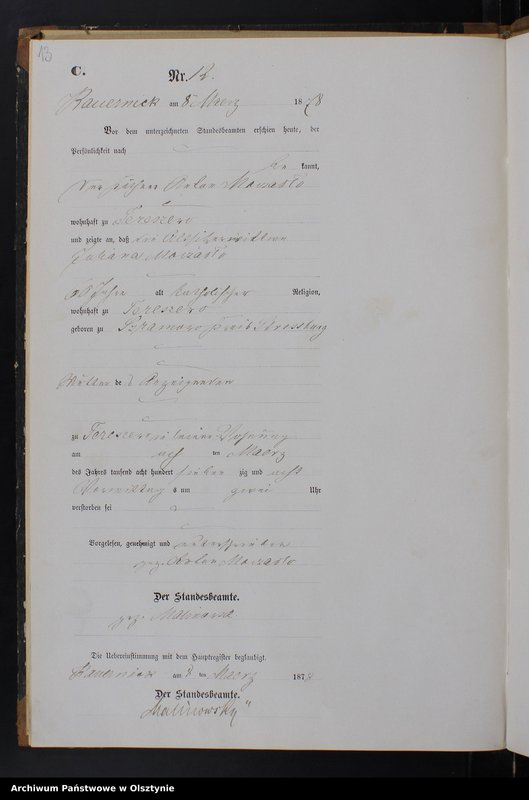 13
C.
Nr. 12.
Kauernick am 8 Maerz 1878
Vor dem unterzeichneten Standesbeamten erschien heute, der
Persönlichkeit nach
be kannt,
wohnhaft zu Tereszewo
und zeigte an, daß die Altsitzerwittwe
alt katholischer Religion,
wohnhaft zu Tereszewo
geboren zu Kreis Strassburg
Mutter des Anzeigenden
zu Tereszewo in seiner Wohnung
am acht ten Maerz
des Jahres tausend acht hundert sieben zig und acht
Vormittag s um zwei Uhr
verstorben sei
Vorgelesen, genehmigt und unterschrieben
gez. Anton
Der Standesbeamte.
gez. Malinowski
Die Uebereinstimmung mit dem Hauptregister beglaubigt.
Kauernick am 8 ten Maerz 1878
Der Standesbeamte.
Malinowski
Archiwum Państwowe w Olsztynie